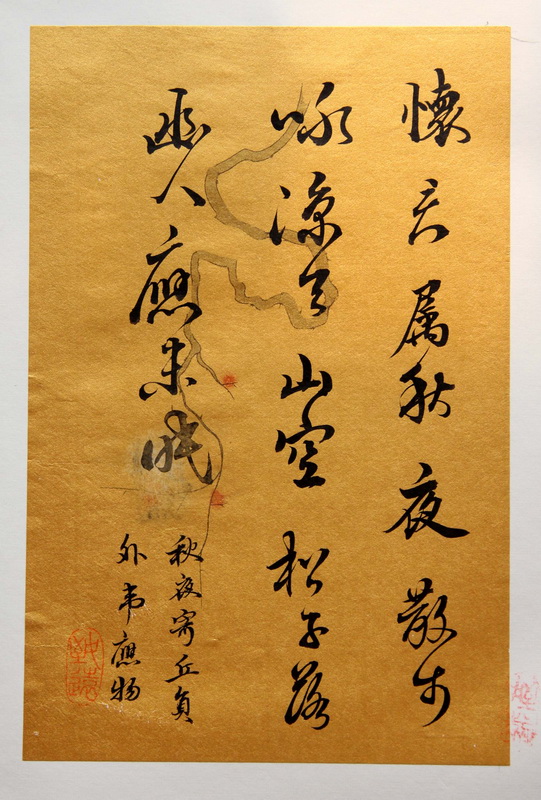 懷君属秋夜散步
咏凉天山空松子落
幽人應未眠
秋夜寄丘員
外韦應物